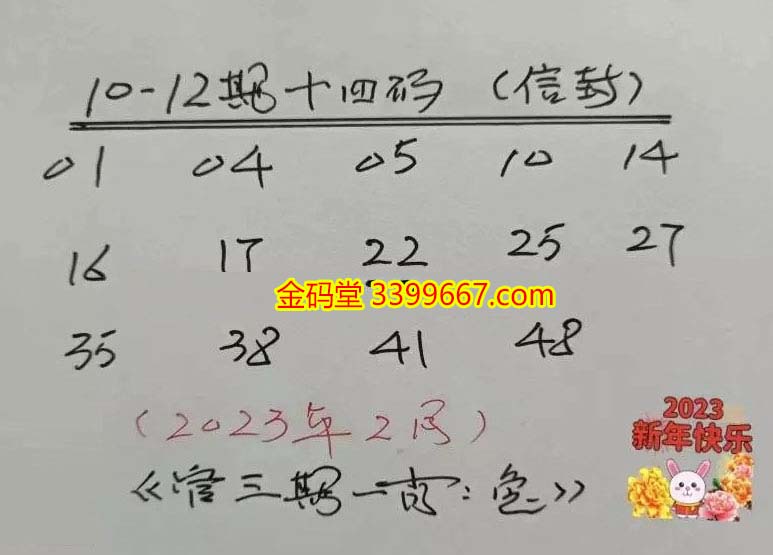 10-12期十四码 (信封)
01 04 05 10 14
16 17 22 25 27
金码堂 3399667.com
35 38 41 48
(2023年2月)
2023
新年快乐
《管三期一肖:兔》